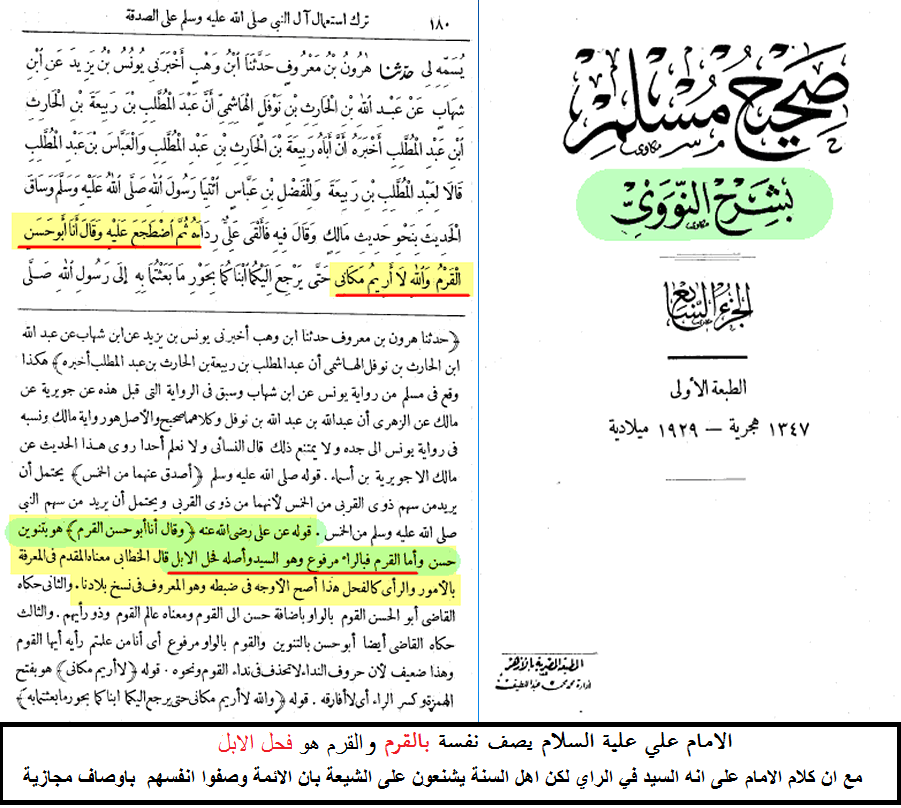 صحيح مسلم
بشرح النووي
الجزء السابع
الطبعة الأولى
١٣٤٧ هجرية – ١٩٢٩ ميلادية
المطبعة المصرية بالأزهر
إدارة محمد محمد عبد اللطيف
١٨٠ ترك استعمال آل النبي صلى الله عليه وسلم على الصدقة
يُسَمِّهِ لِى حَدَّثَنَا هٰرُونُ بْنُ مَعْرُوفٍ حَدَّثَنَا ابْنُ وَهْبٍ أَخْبَرَنِى يُونُسُ بْنُ يَزِيدَ عَنِ ابْنِ
شِهَابٍ عَنْ عَبْدِ اللهِ بْنِ الْحَارِثِ بْنِ نَوْفَلٍ الْهَاشِمِىِّ أَنَّ عَبْدَ الْمُطَّلِبِ بْنَ رَبِيعَةَ بْنِ الْحَارِثِ
ابْنِ عَبْدِ الْمُطَّلِبِ أَخْبَرَهُ أَنَّ أَبَاهُ رَبِيعَةَ بْنَ الْحَارِثِ بْنِ عَبْدِ الْمُطَّلِبِ وَالْعَبَّاسَ بْنَ عَبْدِ الْمُطَّلِبِ
قَالَا لِعَبْدِ الْمُطَّلِبِ بْنِ رَبِيعَةَ وَلِلْفَضْلِ بْنِ عَبَّاسٍ ائْتِيَا رَسُولَ اللهِ صَلَّى اللهُ عَلَيْهِ وَسَلَّمَ وَسَاقَ
الْحَدِيثَ بِنَحْوِ حَدِيثِ مَالِكٍ وَقَالَ فِيهِ فَأَلْقَى عَلِىٌّ رِدَاءَهُ ثُمَّ اضْطَجَعَ عَلَيْهِ وَقَالَ أَنَا أَبُو حَسَنٍ
الْقَرْمُ وَاللهِ لَا أَرِيمُ مَكَانِى حَتَّى يَرْجِعَ إِلَيْكُمَا ابْنَاكُمَا بِحَوْرِ مَا بَعَثْتُمَا بِهِ إِلَى رَسُولِ اللهِ صَلَّى
﴿حدثنا هرون بن معروف حدثنا ابن وهب أخبرنى يونس بن يزيد عن ابن شهاب عن عبد الله
ابن الحارث بن نوفل الهاشمى أن عبد المطلب بن ربيعة بن الحارث بن عبد المطلب أخبره﴾ هكذا
وقع فى مسلم من رواية يونس عن ابن شهاب وسبق فى الرواية التى قبل هذه عن جويرية عن
مالك عن الزهرى أن عبدالله بن عبد الله بن نوفل وكلاهما صحيح والأصل هو رواية مالك ونسبه
فى رواية يونس الى جده ولا يمتنع ذلك قال النسائى ولا نعلم أحدا روى هذا الحديث عن
مالك الا جويرية بن أسماء. قوله صلى الله عليه وسلم ﴿أصدق عنهما من الخمس﴾ يحتمل أن
يريد من سهم ذوى القربى من الخمس لأنهما من ذوى القربى ويحتمل أن يريد من سهم النبى
صلى الله عليه وسلم من الخمس. قوله عن على رضى الله عنه ﴿وقال أنا أبو حسن القرم﴾ هو بتنوين
حسن وأما القرم فبالراء مرفوع وهو السيد وأصله فحل الابل قال الخطابى معناه المقدم فى المعرفة
بالأمور والرأى كالفحل هذا أصح الأوجه فى ضبطه وهو المعروف فى نسخ بلادنا. والثانى حكاه
القاضى أبو الحسن القوم بالواو باضافة حسن الى القوم ومعناه عالم القوم وذو رأيهم. والثالث
حكاه القاضى أيضا أبو حسن بالتنوين والقوم بالواو مرفوع أى أنا من علمتم رأيه أيها القوم
وهذا ضعيف لأن حروف النداء لا تحذف فى نداء القوم ونحوه. قوله ﴿لا أريم مكانى﴾ هو بفتح
الهمزة وكسر الراء أى لا أفارقه. قوله ﴿والله لا أريم مكانى حتى يرجع اليكما ابنا كما بحور ما بعثتما به﴾
الامام علي علية السلام يصف نفسة بالقرم والقرم هو فحل الابل
مع ان كلام الامام على انه السيد في الراي لكن اهل السنة يشنعون على الشيعة بان الائمة وصفوا انفسهم باوصاف مجازية